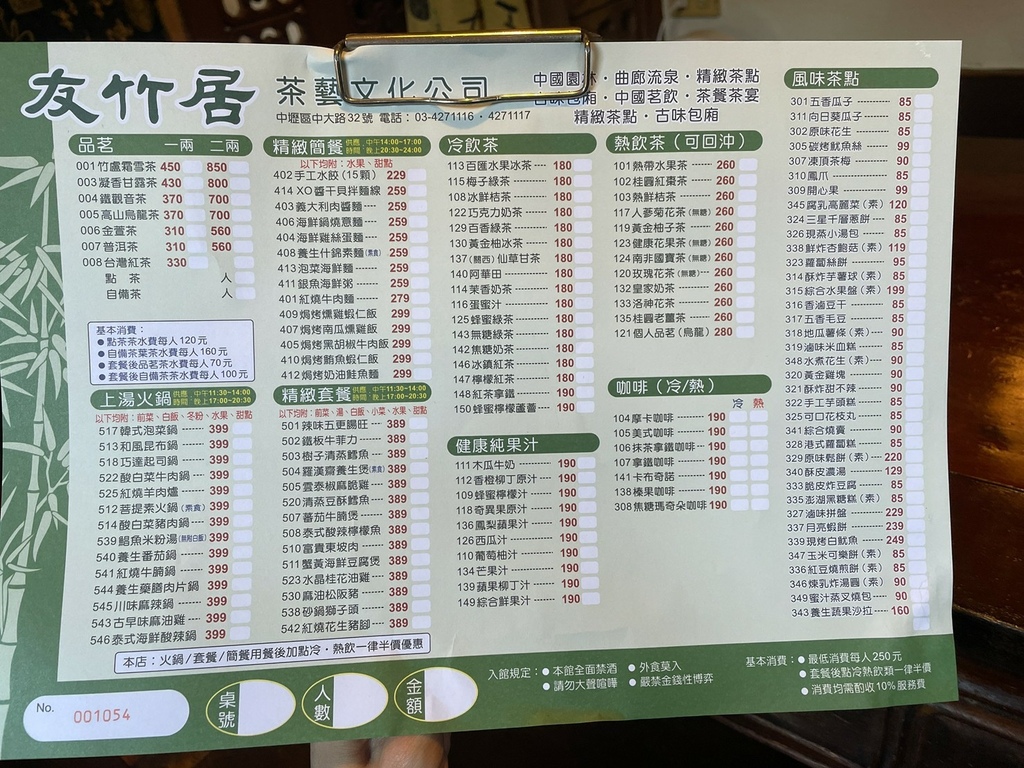 友竹居
茶藝文化公司
中壢區中大路32號 電話：03-4271116・4271117
中國園林・曲廊流泉・精緻茶點
古味包廂・中國茗飲・茶餐茶宴
精緻茶點・古味包廂
品茗 一兩 二兩
001竹盧霜雪茶 450 850
003凝香甘露茶 430 800
004鐵觀音茶 370 700
005高山烏龍茶 370 700
006金萱茶 310 560
007普洱茶 310 560
008台灣紅茶 330
點 茶 人
自備茶 人
基本消費：
●點茶茶水費每人120元
●自備茶葉茶水費每人160元
●套餐後品茗茶水費每人70元
●套餐後自備茶茶水費每人100元
上湯火鍋 供應時間：中午11:30~14:00 晚上17:00~20:30
以下均附：前菜、白飯、冬粉、水果、甜點
517韓式泡菜鍋 399
513和風昆布鍋 399
518巧達起司鍋 399
522酸白菜牛肉鍋 399
525紅燒羊肉爐 399
512菩提素火鍋（素食） 399
514酸白菜豬肉鍋 399
539鯧魚米粉湯(無附白飯) 399
540養生番茄鍋 399
541紅燒牛腩鍋 399
544養生藥膳肉片鍋 399
545川味麻辣鍋 399
543古早味麻油雞 399
546泰式海鮮酸辣鍋 399
精緻簡餐 供應時間：中午14:00~17:00 晚上20:30~24:00
以下均附：水果、甜點
402手工水餃（15顆） 229
414XO醬干貝拌麵線 259
403義大利肉醬麵 259
406海鮮鍋燒意麵 259
404海鮮雞絲蛋麵 259
408養生什錦素麵(素食) 259
413泡菜海鮮麵 259
411銀魚海鮮粥 259
401紅燒牛肉麵 279
409焗烤燻雞蝦仁飯 299
407焗烤南瓜燻雞飯 299
405焗烤黑胡椒牛肉飯 299
410焗烤鮪魚蝦仁飯 299
412焗烤奶油鮭魚麵 299
精緻套餐 供應時間：中午11:30~14:00 晚上17:00~20:30
以下均附：前菜、湯、白飯、小菜、水果、甜點
501辣味五更腸旺 389
502鐵板牛菲力 389
503樹子清蒸鱈魚 389
504羅漢齋養生煲(素食) 389
505雲泰椒麻脆雞 389
520清蒸豆酥鱈魚 389
507蕃茄牛腩煲 389
508泰式酸辣檸檬魚 389
510富貴東坡肉 389
511蟹黃海鮮豆腐煲 389
523水晶桂花油雞 389
530麻油松阪豬 389
538砂鍋獅子頭 389
542紅燒花生豬腳 389
本店：火鍋/套餐/簡餐用餐後加點冷・熱飲一律半價優惠
冷飲茶
113百匯水果冰茶 180
115梅子綠茶 180
108冰鮮桔茶 180
122巧克力奶茶 180
129百香綠茶 180
130黃金柚冰茶 180
137(關西)仙草甘茶 180
140阿華田 180
114茉香奶茶 180
116蛋蜜汁 180
125蜂蜜綠茶 180
143無糖綠茶 180
142焦糖奶茶 180
146冰鎮紅茶 180
147檸檬紅茶 180
148紅茶拿鐵 180
150蜂蜜檸檬蘆薈 180
健康純果汁
111木瓜牛奶 190
112香橙柳丁原汁 190
109蜂蜜檸檬汁 190
118奇異果原汁 190
136鳳梨蘋果汁 190
126西瓜汁 190
110葡萄柚汁 190
134芒果汁 190
139蘋果柳丁汁 190
149綜合鮮果汁 190
熱飲茶（可回沖）
101熱帶水果茶 260
102桂圓紅棗茶 260
103熱鮮桔茶 260
117人參菊花茶(無糖) 260
119黃金柚子茶 260
123健康花果茶(無糖) 260
124南非國寶茶(無糖) 260
120玫瑰花茶(無糖) 260
132皇家奶茶 260
133洛神花茶 260
135桂圓老薑茶 260
121個人品茗（烏龍） 280
咖啡（冷/熱）
冷 熱
104摩卡咖啡 190
105美式咖啡 190
106抹茶拿鐵咖啡 190
107拿鐵咖啡 190
141卡布奇諾 190
138榛果咖啡 190
308焦糖瑪奇朵咖啡 190
風味茶點
301五香瓜子 85
311向日葵瓜子 85
302原味花生 85
305碳烤魷魚絲 99
307凍頂茶梅 90
310鳳爪 85
309開心果 99
345腐乳高麗菜（素） 120
324三星千層蔥餅 85
326現蒸小湯包 85
338鮮炸杏鮑菇（素） 119
323蘿蔔絲餅 95
314酥炸芋薯球（素） 85
315綜合水果盤（素） 199
316香滷豆干 85
317五香毛豆 85
318地瓜薯條（素） 90
319滷味米血糕 85
348水煮花生（素） 90
320黃金雞塊 90
321酥炸甜不辣 90
322手工芋頭糕 85
325可口花枝丸 85
341綜合燒賣 90
328港式蘿蔔糕 85
329原味鬆餅（素） 220
340酥皮濃湯 120
333脆皮炸豆腐 85
335澎湖黑糖糕（素） 85
327滷味拼盤 229
337月亮蝦餅 239
339現烤白魷魚 249
347玉米可樂餅（素） 85
336紅豆燒煎餅（素） 85
346煉乳炸湯圓（素） 90
349蜜汁蒸叉燒包 90
343養生蔬果沙拉 160
No. 001054
桌號
人數
金額
入館規定：●本館全面禁酒 ●外食莫入
●請勿大聲喧嘩 ●嚴禁金錢性博弈
基本消費：●最低消費每人250元
●套餐後點冷熱飲類一律半價
●消費均需酌收10%服務費